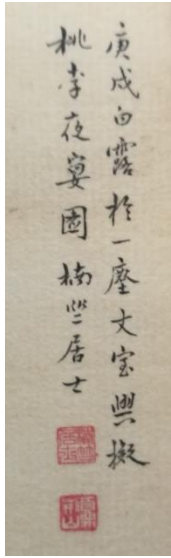 庚戌白露於一塵丈室興擬
桃李夜宴圖 楠竺居士